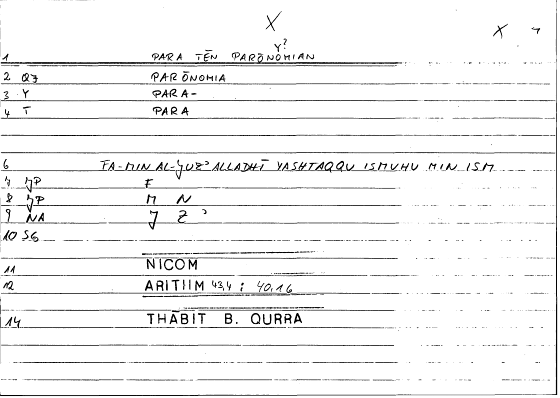 X
X 4
Y?
1 PARA TĒN PARŌNOMIAN
2 QZ PARŌNOMIA
3 Y PARA-
4 T PARA
6 FA-MIN AL-JUZʾ ALLADHĪ YASHTAQQU ISMUHU MIN ISM
7 JP F
8 JP M N
9 NA J Z ʾ
10 SG
11 NICOM
12 ARITIIM 43,4 ; 40,16
14 THĀBIT B. QURRA